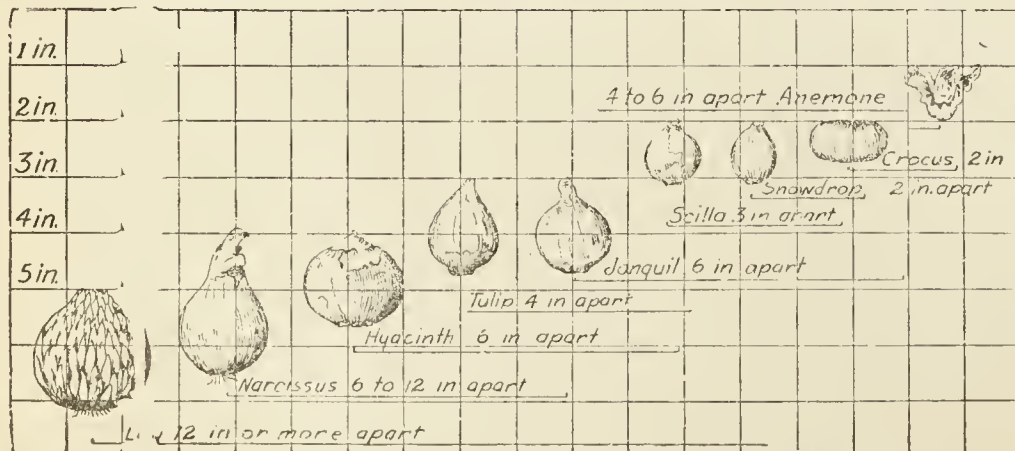 1 in.
2 in.
3 in.
4 in.
5 in.
4 to 6 in apart Anemone
Crocus, 2 in
Snowdrop, 2 in. apart
Scilla 3 in apart
Jonquil 6 in apart
Tulip 4 in apart
Hyacinth 6 in apart
Narcissus 6 to 12 in apart
12 in or more apart